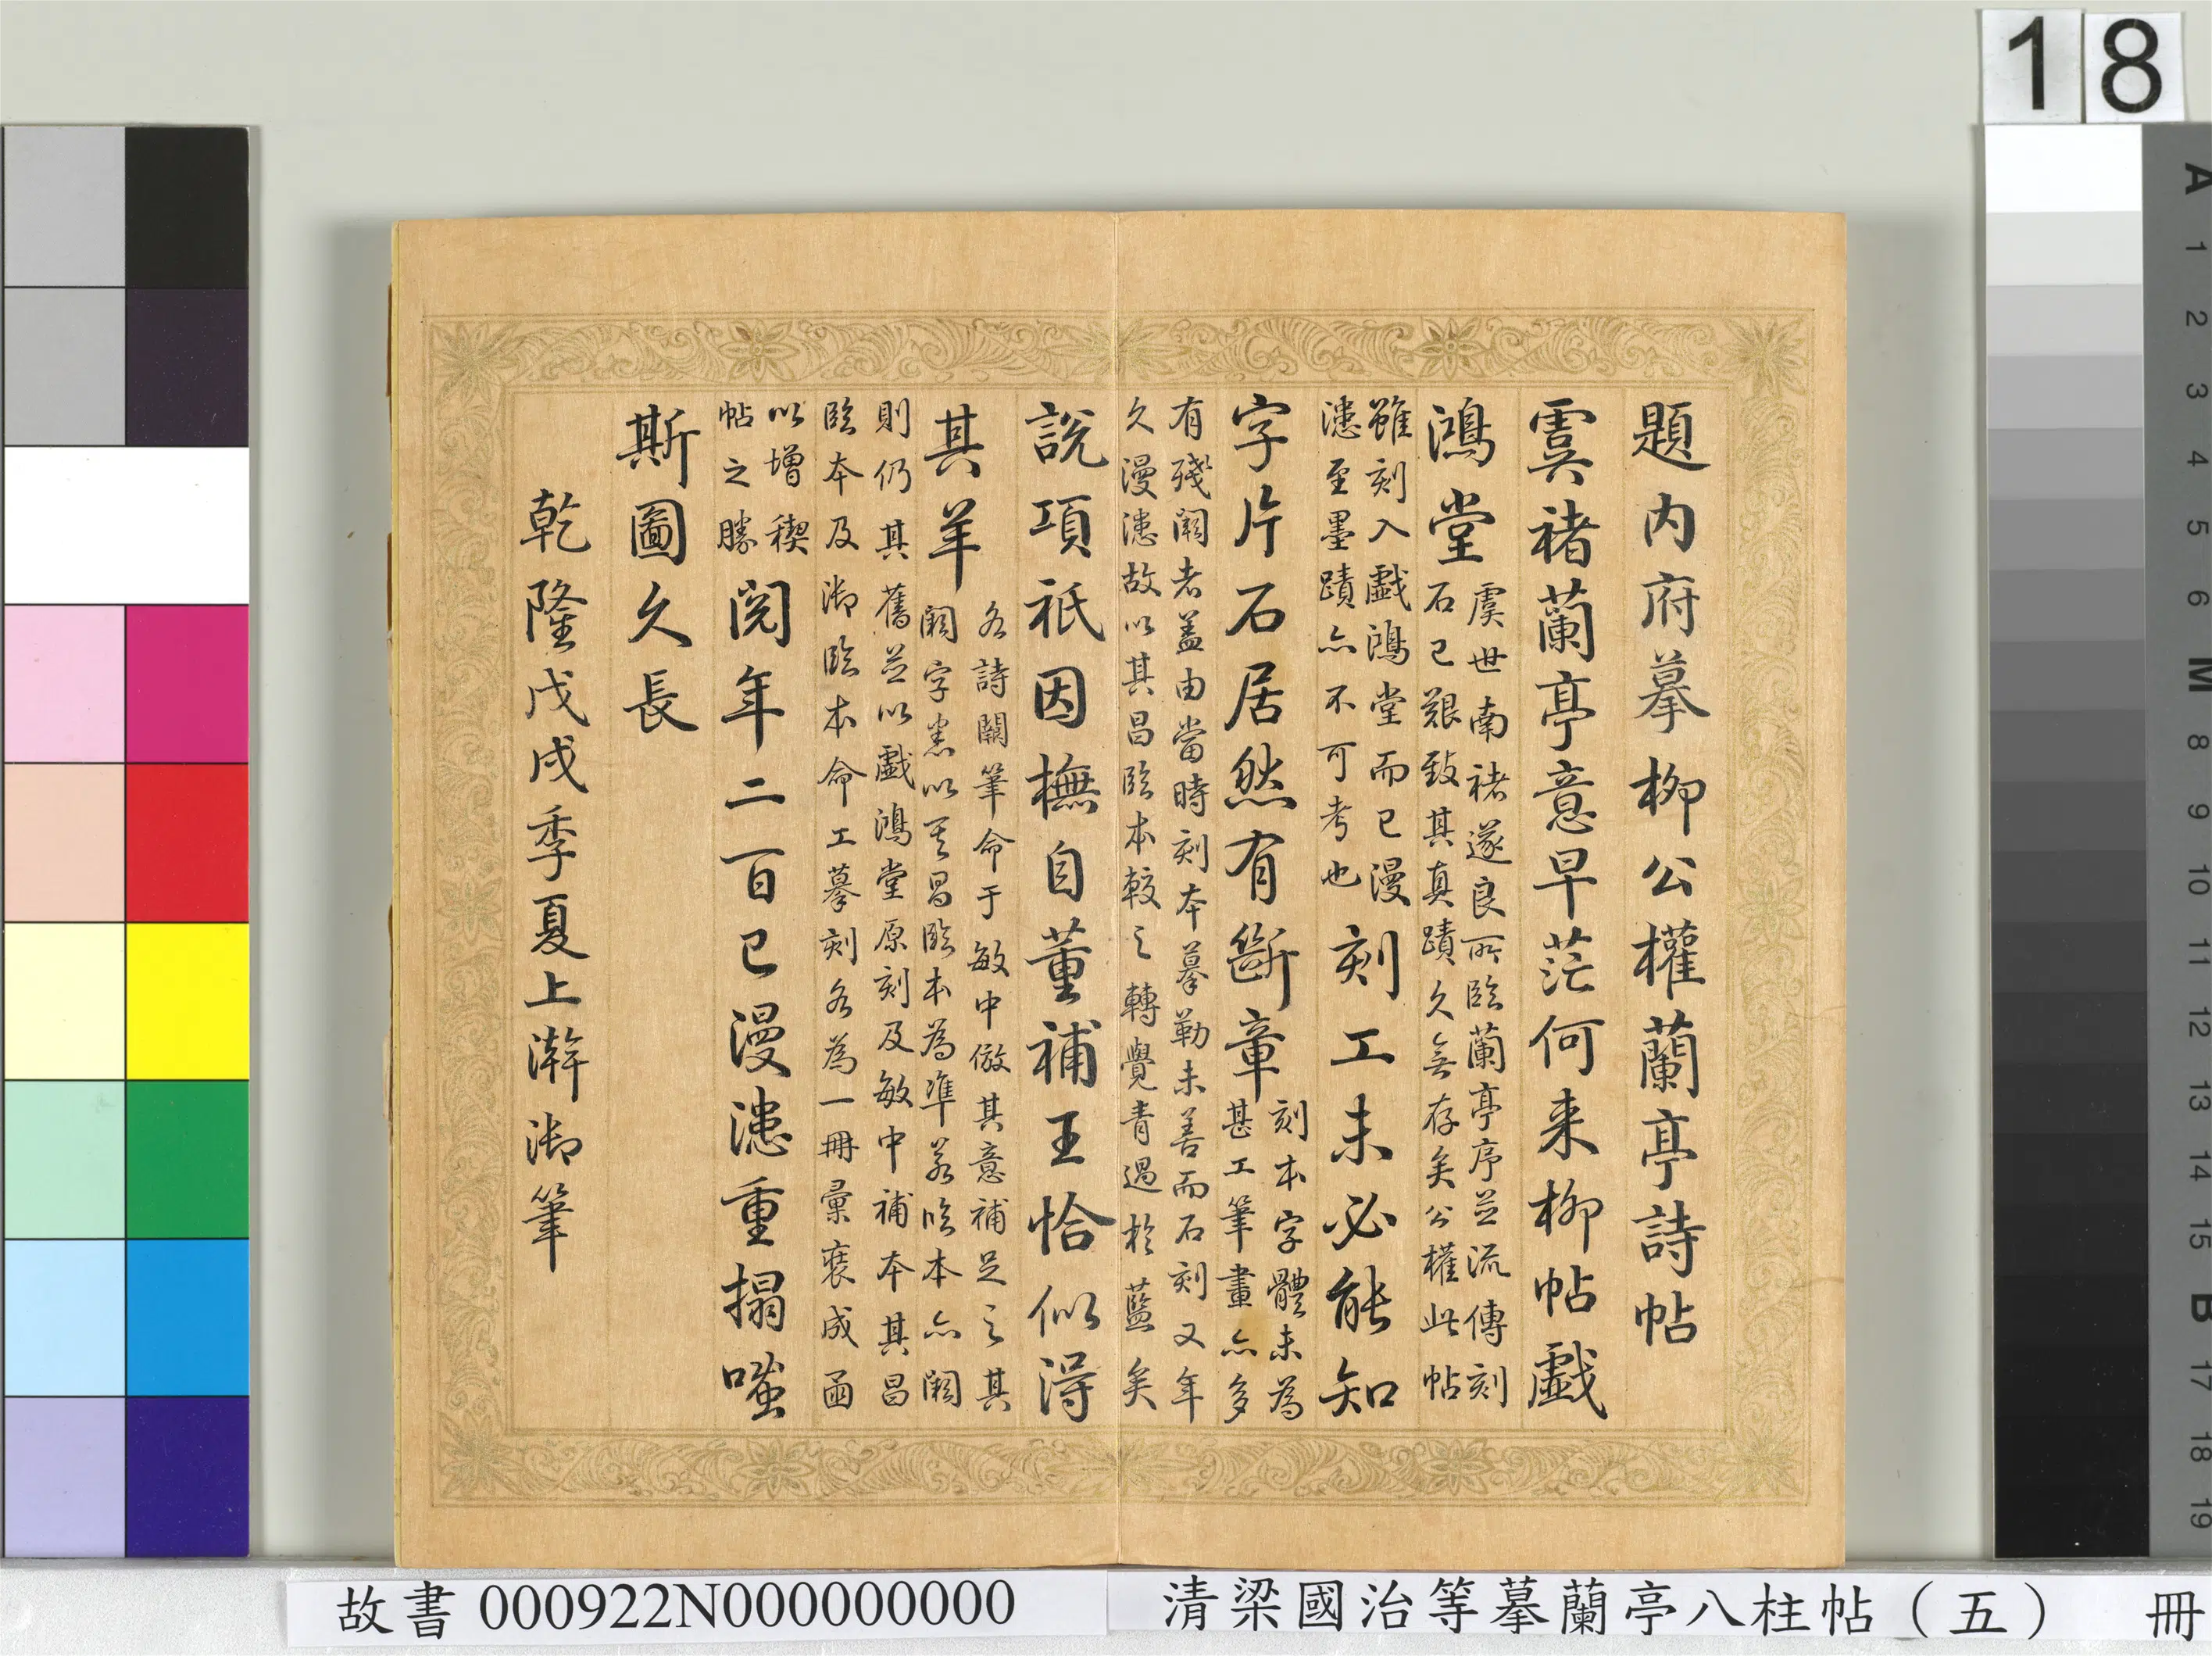 題内府摹柳公權蘭亭詩帖
虞褚蘭亭意早茫何来柳帖戲
鴻堂
虞世南褚遂良所臨蘭亭序並流傳刻
石已艱致其真蹟久無存矣公權此帖
雖刻入戲鴻堂而已漫
漶至墨蹟亦不可考也
刻工未必能知
字片石居然有斷章
刻本字體未為
甚工筆畫亦多
有殘闕者盖由當時刻本摹勒未善而石刻又年
久漫漶故以其昌臨本較之轉覺青過於藍矣
說項祇因橅自董補王恰似得
其羊
各詩闕筆命于敏中倣其意補足之其
闕字悉以其昌臨本為準若臨本亦闕
則仍其舊並以戲鴻堂原刻及敏中補本其昌
臨本及御臨本命工摹刻各為一冊彙裒成函
以增稧
帖之勝
閱年二百已漫漶重搨嗤
斯圖久長
乾隆戊戌季夏上澣御筆
18
A 1 2 3 4 5 6 M 8 9 10 11 12 13 14 15 B 17 18 19
故書 000922N000000000
清梁國治等摹蘭亭八柱帖（五） 冊